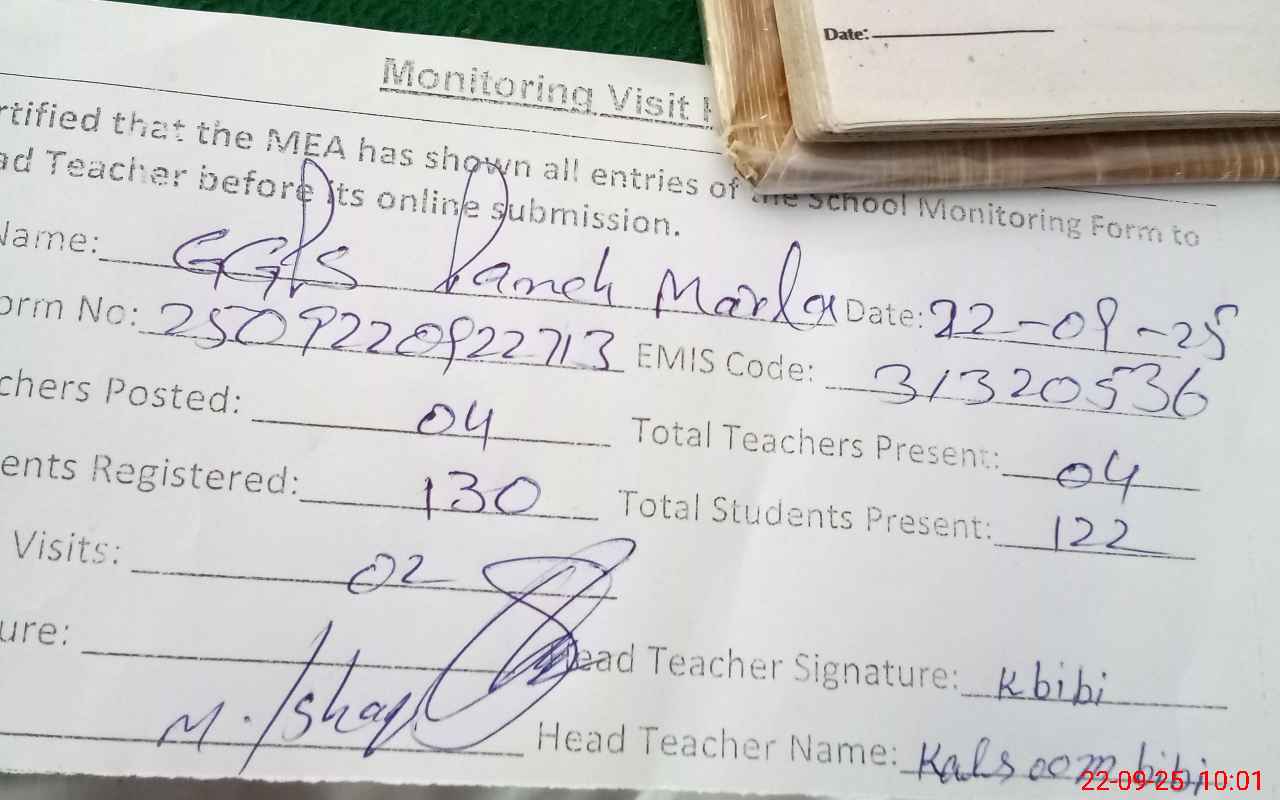 Date:
Monitoring Visit
rtified that the MEA has shown all entries of the School Monitoring Form to
ad Teacher before its online submission.
Name: GGPS Panch Marla Date: 22-09-25
orm No: 2509220922713 EMIS Code: 31320536
chers Posted: 04 Total Teachers Present: 04
ents Registered: 130 Total Students Present: 122
Visits: 02
ure: Head Teacher Signature: K bibi
M. Ishaq Head Teacher Name: Kalsoom bibi
22-09-25 10:01